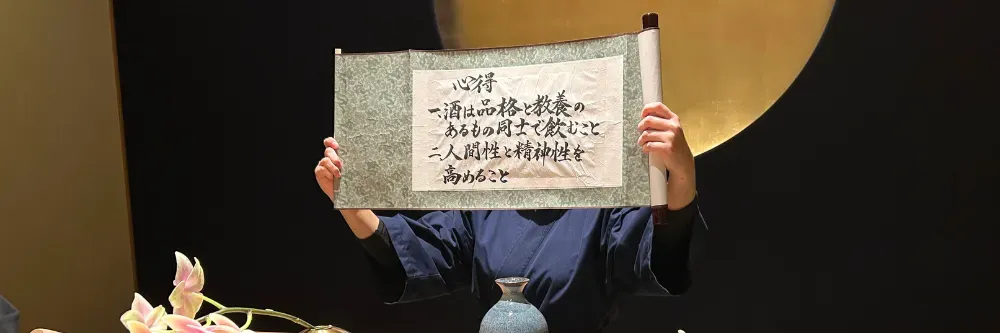 心得
一、酒は品格と教養の
あるもの同士で飲むこと
二、人間性と精神性を
高めること